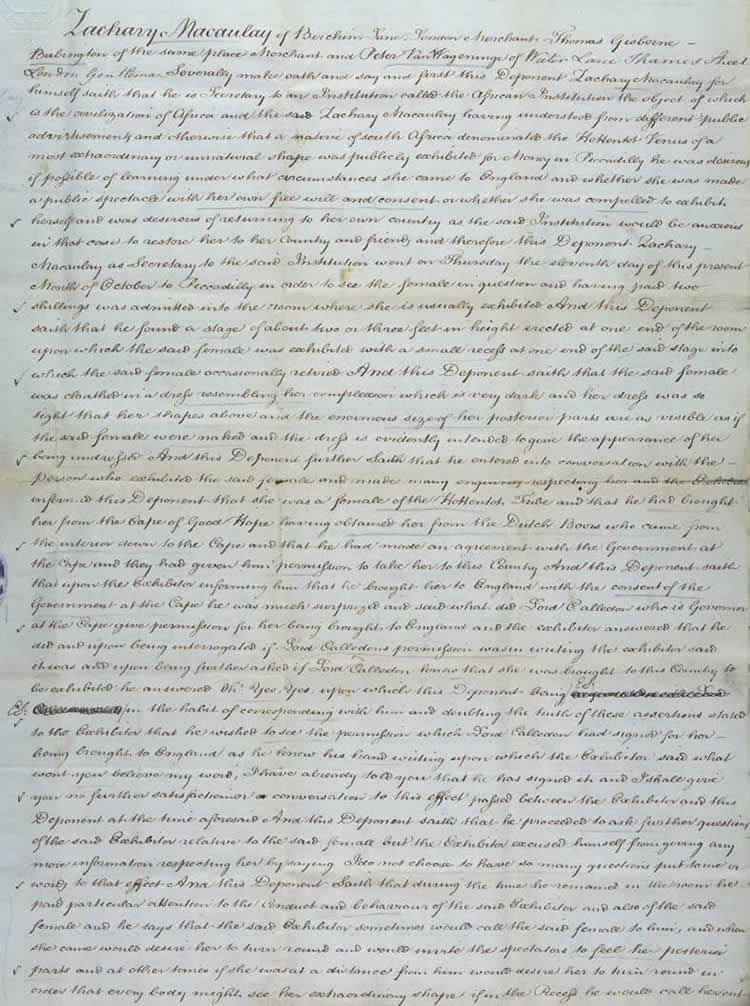 Zachary Macaulay of Birchin Lane London Merchant Thomas Gisborne
Babington of the same place Merchant and Peter Van Wageninge of Water Lane Thames Street
London Gentleman Severally make oath and say and first this Deponent Zachary Macaulay for
himself saith that he is Secretary to an Institution called the African Institution the object of which
is the civilization of Africa and the said Zachary Macaulay having understood from different public
advertisements and otherwise that a native of south Africa denominated the Hottentot Venus of a
most extraordinary or unnatural shape was publicly exhibited for Money in Piccadilly he was desirous
if possible of learning under what circumstances she came to England and whether she was made
a public spectacle with her own free will and consent or whether she was compelled to exhibit
herself and was desirous of returning to her own country as the said Institution would be anxious
in that case to restore her to her Country and friends and therefore this Deponent Zachary
Macaulay as Secretary to the said Institution went on Thursday the eleventh day of this present
Month of October to Piccadilly in order to see the female in question and having paid two
shillings was admitted into the room where she is usually exhibited And this Deponent
saith that he found a stage of about two or three feet in height erected at one end of the room
upon which the said female was exhibited with a small recess at one end of the said stage into
which the said female occasionally retired And this Deponent saith that the said female
was cloathed in a dress resembling her complexion which is very dark and her dress was so
tight that her shapes above and the enormous size of her posterior parts are as visible as if
the said female were naked and the dress is evidently intended to give the appearance of her
being undressed And this Deponent further Saith that he entered into conversation with the
person who exhibited the said female and made many enquiries respecting her and the Exhibitor
informed this Deponent that she was a female of the Hottentot Tribe and that he had brought
her from the Cape of Good Hope having obtained her from the Dutch Boors who came from
the interior down to the Cape and that he had made an agreement with the Government at
the Cape and they had given him permission to take her to this Country And this Deponent saith
that upon the Exhibitor informing him that he brought her to England with the consent of the
Government at the Cape he was much surprized and said what did Lord Calledon who is Governor
at the Cape give permission for her being brought to England and the exhibitor answered that he
did and upon being interrogated if Lord Calledons permission was in writing the exhibitor said
it was and upon being further asked if Lord Calledon knew that she was brought to this Country to
be exhibited he answered Oh! Yes, Yes, upon which this Deponent being
in the habit of corresponding with him and doubting the truth of these assertions stated
to the Exhibitor that he wished to see the permission which Lord Calledon had signed for her
being brought to England as he knew his hand writing upon which the Exhibitor said what
wont you believe my word, I have already told you that he has signed it and I shall give
you no further satisfaction or a conversation to this effect passed between the Exhibitor and this
Deponent at the time aforesaid And this Deponent saith that he proceeded to ask further questions
of the said Exhibitor relative to the said female but the Exhibitor excused himself from giving any
more information respecting her by saying I do not choose to have so many questions put to me or
words to that effect And this Deponent Saith that during the time he remained in the room he
paid particular attention to the Conduct and behaviour of the said Exhibitor and also of the said
female and he says that the said Exhibitor sometimes would call the said female to him, and when
she came would desire her to turn round and would invite the spectators to feel her posterior
parts and at other times if she was at a distance from him would desire her to turn round in
order that every body might see her extraordinary shape if in the Recess he would call her out